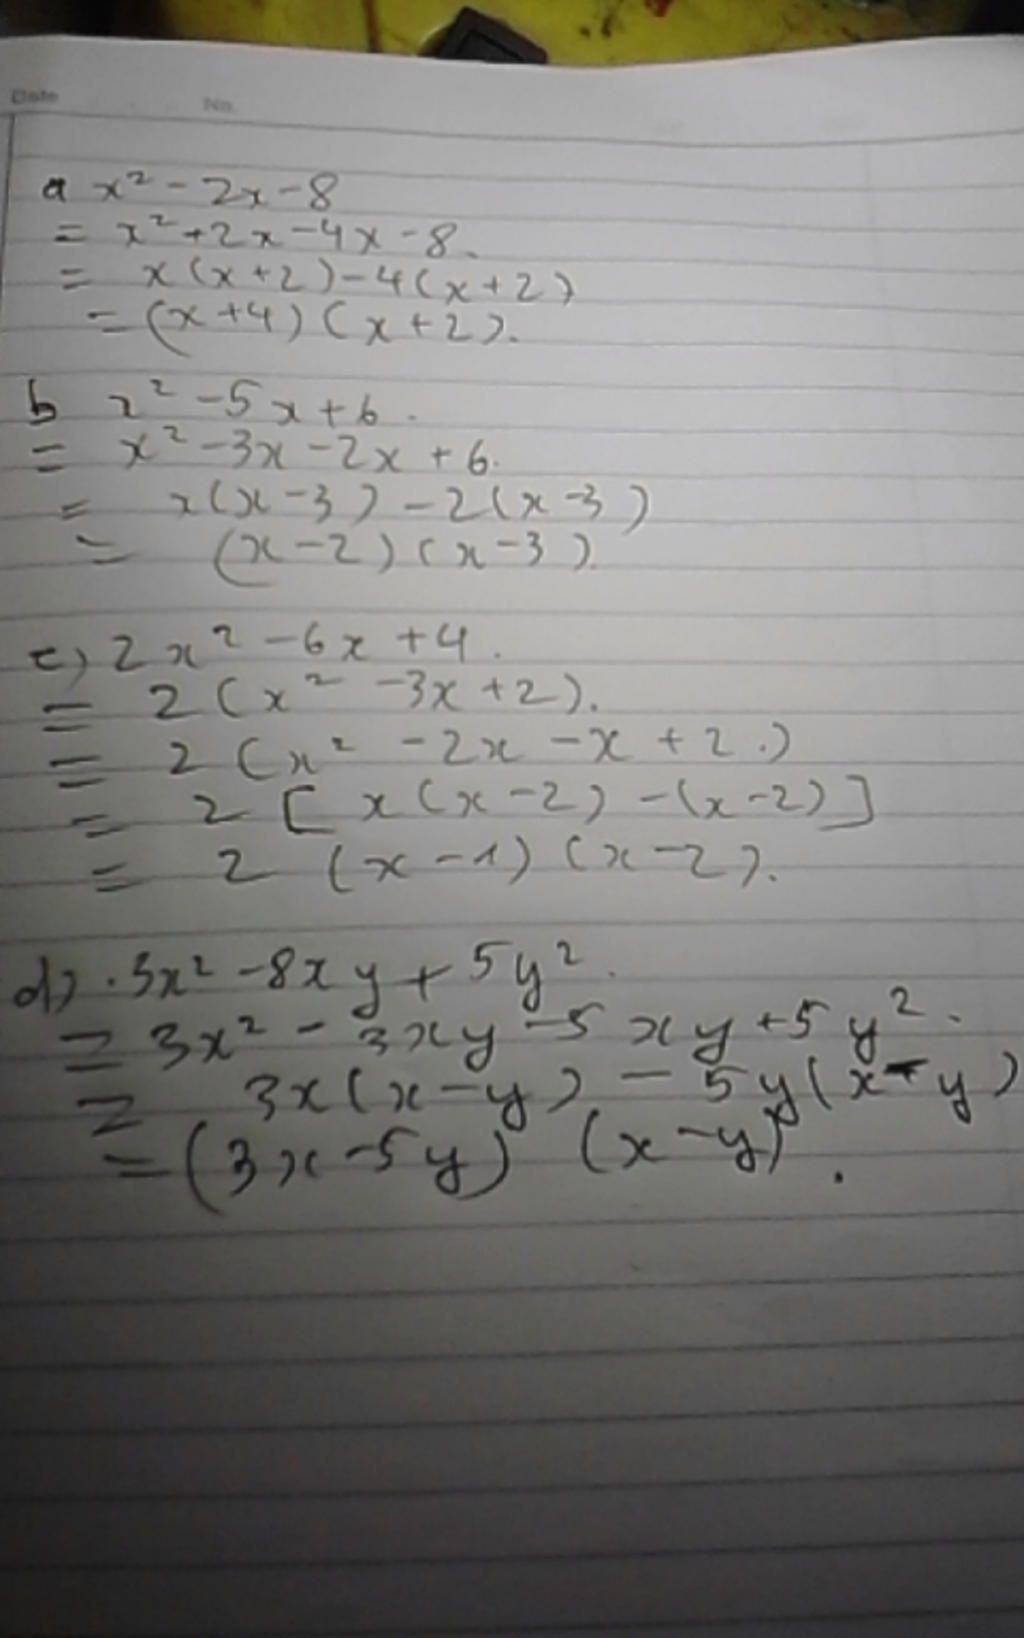 Date No.
a x² - 2x - 8
= x² + 2x - 4x - 8.
= x(x+2) - 4(x+2)
= (x+4)(x+2).
b x² - 5x + 6.
= x² - 3x - 2x + 6.
= x(x-3) - 2(x-3)
= (x-2)(x-3).
c) 2x² - 6x + 4.
= 2(x² - 3x + 2).
= 2(x² - 2x - x + 2.)
= 2[x(x-2) - (x-2)]
= 2 (x-1)(x-2).
d) .3x² - 8xy + 5y².
= 3x² - 3xy - 5xy + 5y².
= 3x(x-y) - 5y(x-y)
= (3x-5y) (x-y).